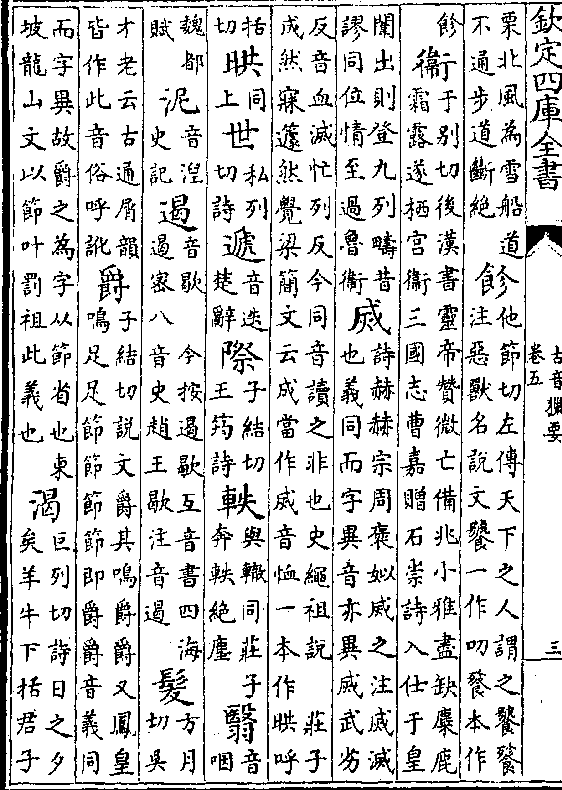 欽定四庫全書
古音獵要
卷五
三
栗北風為雪船道
不通步道斷絕
飻
他節切左傳天下之人謂之饕餮
注惡獸名說文饕一作叨餮本作
飻
衛
于別切後漢書靈帝贊微亡備兆小雅盡缺麋鹿
霜露遂栖宫衛三國志曹嘉贈石崇詩入仕于皇
闈出則登九列疇昔
謬同位情至過魯衛
烕
詩赫赫宗周褒姒烕之注烕滅
也義同而字異音亦異烕武劣
反音血滅忙列反今同音讀之非也史繩祖說 莊子
成然寐蘧然覺梁簡文云成當作烕音恤一本作映呼
括
切
映
同
上
世
私列
切詩
遞
音迭
楚辭
際
子結切
王筠詩
軼
與轍同莊子
奔軼絶塵
翳
音
咽
魏都
賦
泥
音湼
史記
遏
音歇 今按遏歇互音書四海
遏密八音史趙王歇注音遏
髮
方月
切吳
才老云古通屑韻
皆作此音俗呼訛
爵
子結切說文爵其鳴爵爵又鳳皇
鳴足足節節節節即爵爵音義同
而字異故爵之為字从節省也東
坡龍山文以節叶罰祖此義也
渴
巨列切詩日之夕
矣羊牛下括君子